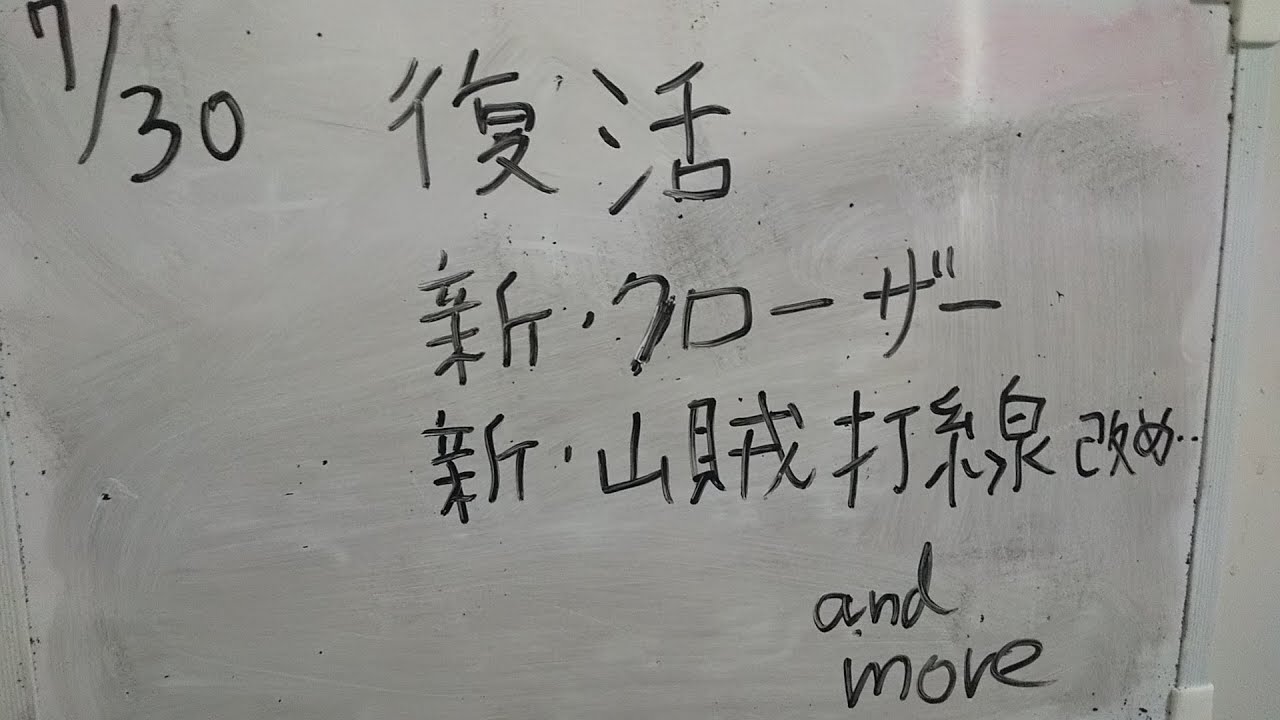 7/30 復活
新・クローザー
新・山賊打線改め‥
and
more